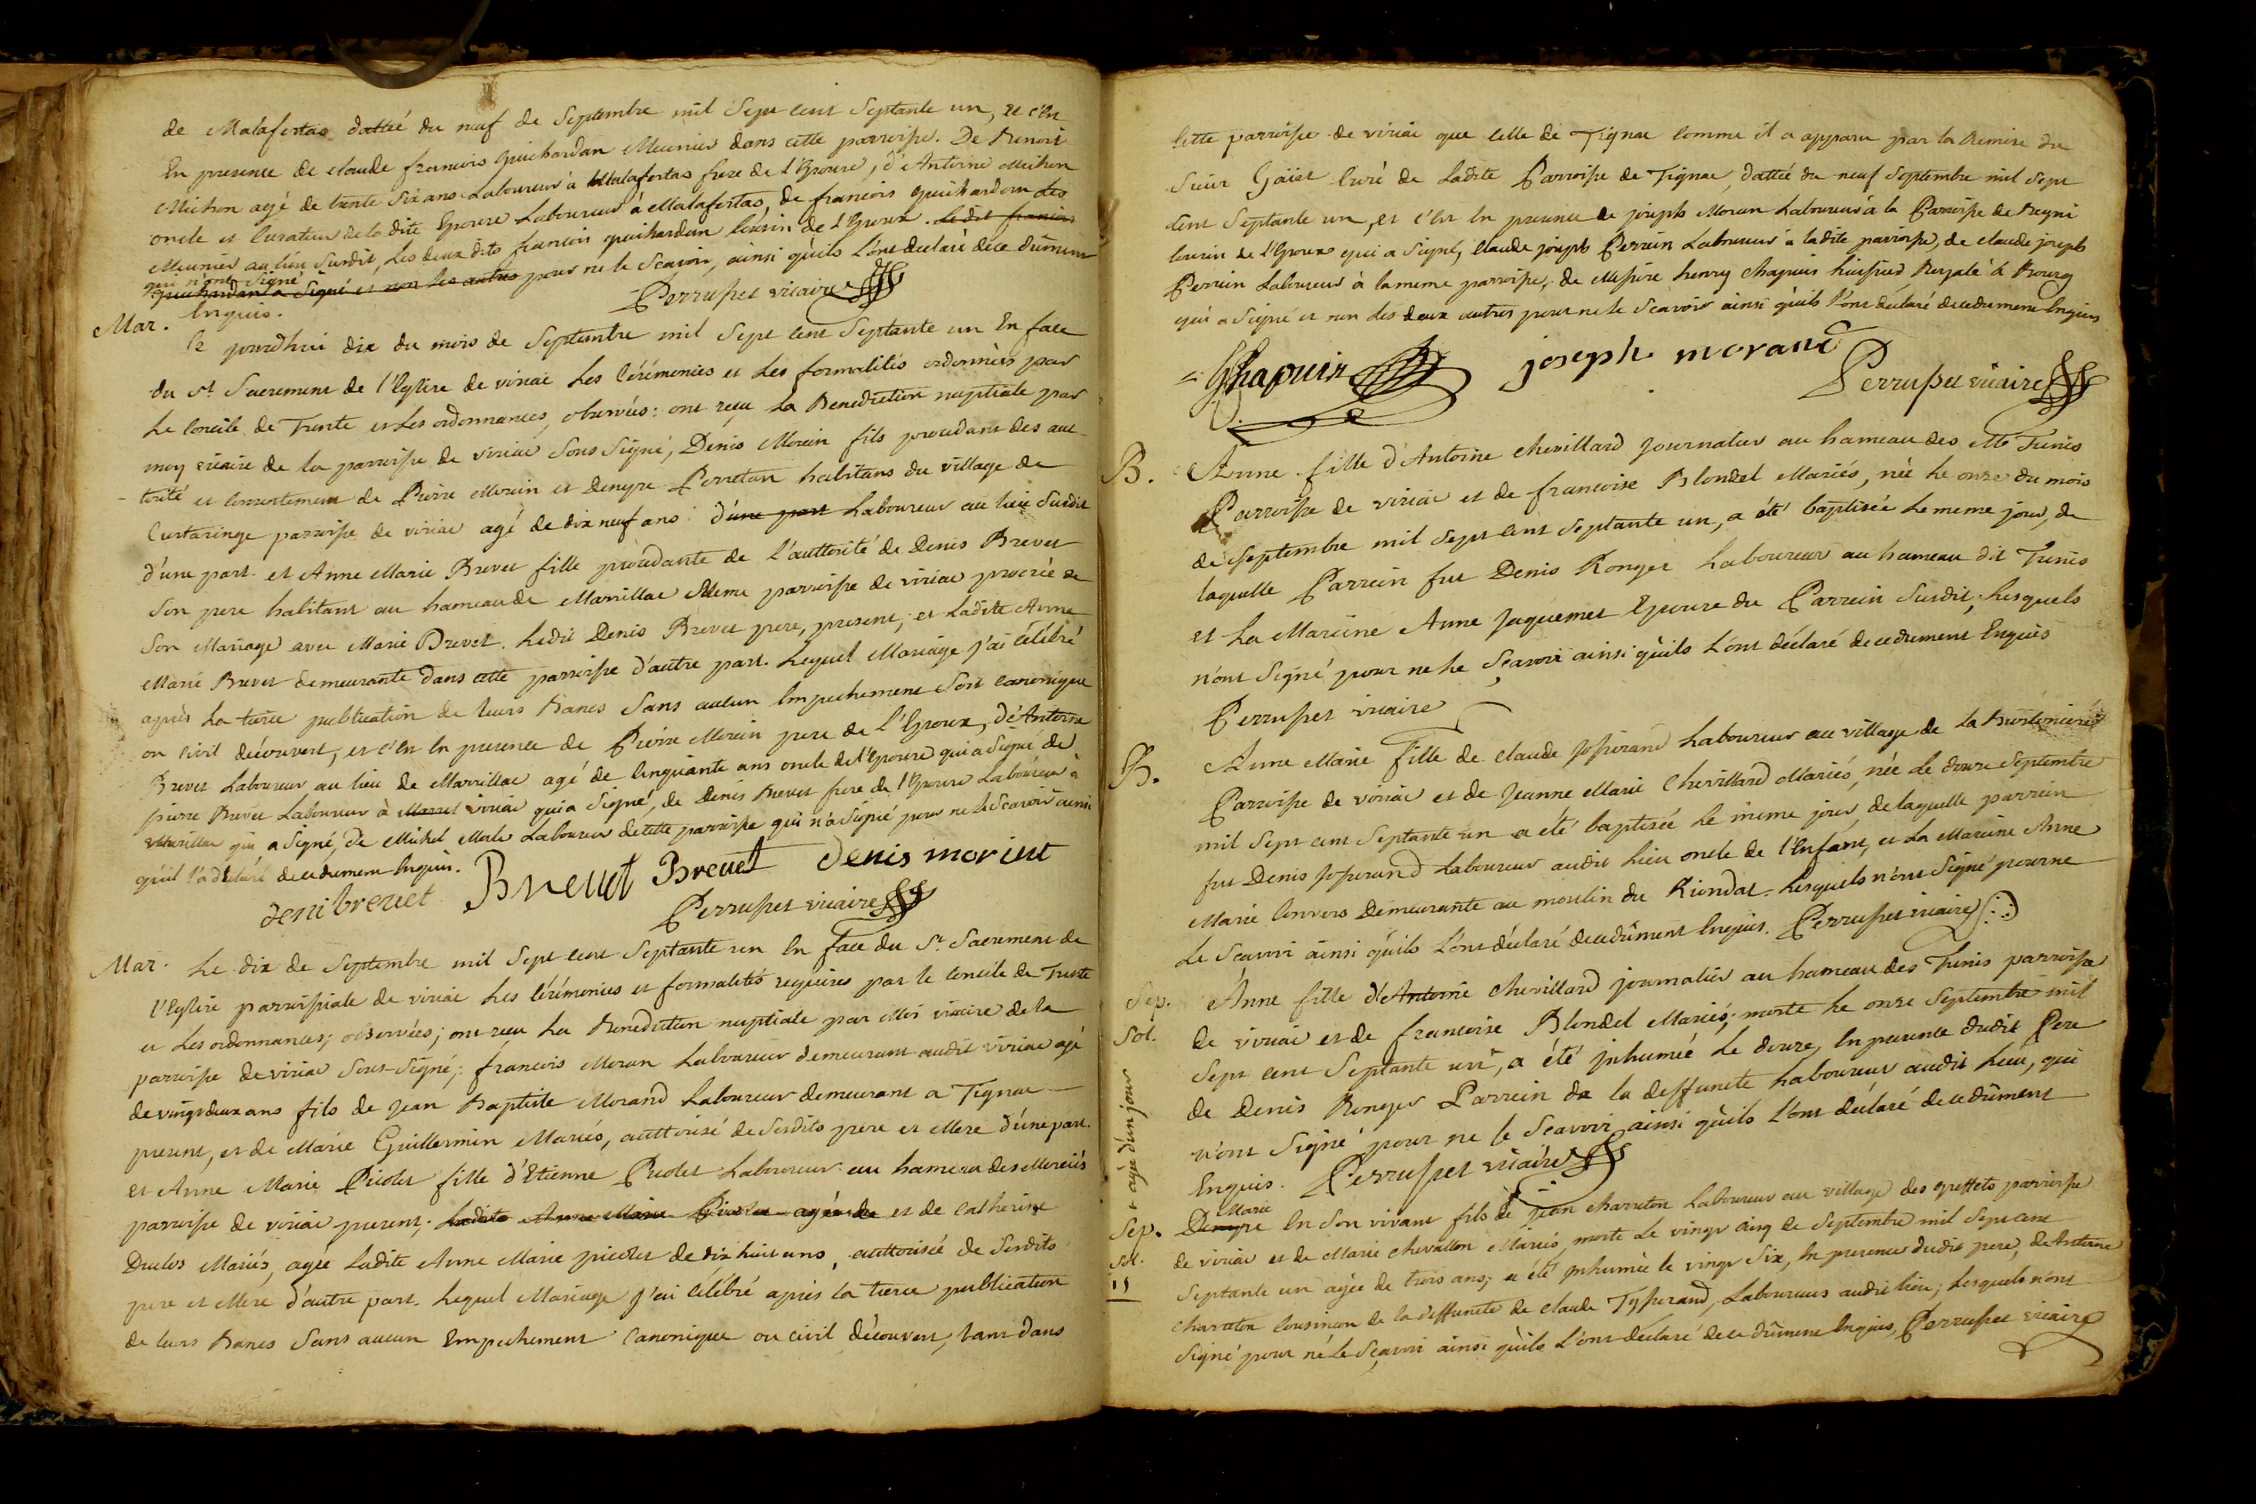 de Malafertas dattée du neuf de Septembre mil Sept cent Septante un, et c'En
En presence de claude francois Guichardan Meunier dans cette parroisse. De Benoit
Michon agé de trente Six ans Laboureur à Malafertas frere de l'Epouse, d'Antoine Michon
oncle et Curateur de la dite Epouse Laboureur à Malafertas, de francois Guichardan
Meunier au lieu Susdit, Les deux dits francois guichardan Cousin de l'Epoux. Le dit francois
qui n'ont Signé
guichardan a Signé et non les autres pour ne le Scavoir, ainsi qu'ils L'ont declaré de ce dûment
Enquis.
Perrusset vicaire
Mar.
Ce jourd'hui dix du mois de Septembre mil Sept cent Septante un En face
du St. Sacrement de l'Eglise de viriac Les Cérémonies et Les formalités ordonnées par
Le Concile de Trente et Les ordonnances, observées: ont reçu La Benediction nuptiale par
moy vicaire de la parroisse de viriac Sous Signé, Denis Morin fils procedant des aut
torité et Consentement de Pierre Morin et Denyse Perretan habitans du village de
Curtaringe parroisse de viriac agé de dix neuf ans d'une part Laboureur au lieu Susdit
d'une part. et Anne Marie Brevet fille procedante de L'authorité de Denis Brevet
Son pere habitant au hameau de Marvillac Meme parroisse de viriac procréé de
Son Mariage avec Marie Brevet. Ledit Denis Brevet pere, present; et Ladite Anne
Marie Brevet demeurante dans cette parroisse d'autre part. Lequel Mariage j'ai célébré
après La tierce publication de leurs Bancs Sans aucun Empechement Soit canonique
ou civil découvert, et c'En En presence de Pierre Morin pere de L'Epoux, d'Antoine
Brevet Laboureur au lieu de Marvillac agé de Cinquante ans oncle de l'Epouse qui a Signé de
pierre Brevet Laboureur à viriac qui a Signé, de Denis Brevet frere de l'Epouse Laboureur à
Marvillac qui a Signé, De Michel Laboureur de cette parroisse qui n'a Signé pour ne le Scavoir ainsi
qu'il l'a declaré de ce dument Enquis.
deni brevet Brevet Brevet Denis morint
Perrusset vicaire
Mar.
Le dix de Septembre mil Sept cent Septante un En face du St. Sacrement de
l'Eglise parroissiale de viriac Les Cérémonies et formalités requises par le Concile de Trente
et Les ordonnances, observées; ont reçu La Benediction nuptiale par Moi vicaire de la
parroisse de viriac Sous-Signé; francois Moran Laboureur demeurant audit viriac agé
de vingt deux ans fils de Jean Baptiste Morand Laboureur demeurant a Tignac
present, et de Marie Guillermin Mariés, authorisé de Sesdits pere et Mere d'une part.
et Anne Marie Picolet fille d'Etienne Picolet Laboureur au hameau des
parroisse de viriac present. Ladite Anne Marie Picolet agée de et de Catherine
Duclos Mariés, agée Ladite Anne Marie picolet de dix huit ans, authorisée de Sesdits
pere et Mere d'autre part. Lequel Mariage j'ai célébré après la tierce publication
de leurs Bancs Sans aucun Empechement Canonique ou civil découvert, tant dans
Cette parroisse de viriac que celle de Tignac comme il a apparu par la Remise du
Sieur Curé de Ladite Parroisse de Tignac, dattée du neuf Septembre mil Sept
Cent Septante un, et c'En En presence de joseph Moran Laboureur à la Parroisse de
Cousin de L'Epoux qui a Signé, claude joseph Perrin Laboureur à ladite parroisse, de claude joseph
Perrin Laboureur à la meme parroisse, de Messire henry Chapuis huissier Royale à Bourg
qui a Signé et non Les deux autres pour ne le Scavoir ainsi qu'ils L'ont déclaré de ce dument Enquis
Chapuis joseph morand
Perrusset vicaire
B.
Anne fille d'Antoine chevillard Journalier au hameau des Tunis
Parroisse de viriac et de francoise Blondel Mariés, née Le onze du mois
de Septembre mil Sept cent Septante un, a été baptisée Le meme jour, de
laquelle Parrein fut Denis Ronger Laboureur au hameau dit Tunis
et La Mareine Anne Jaquemet Epouse du Parrein Susdit, Lesquels
n'ont Signé pour ne Le Scavoir ainsi qu'ils L'ont déclaré de ce dument Enquis
Perrusset vicaire
B.
Anne Marie fille de claude Josserand Laboureur au village de La
Parroisse de viriac et de Jeanne Marie Chevillard Mariés, née Le douze Septembre
mil Sept cent Septante un a été baptisée Le meme jour, de laquelle parrein
fut Denis Josserand Laboureur audit Lieu oncle de l'Enfant, et La Mareine Anne
Marie Convers Demeurante au moulin du Riondas. Lesquels n'ont Signé pour ne
Le Scavoir ainsi qu'ils L'ont déclaré de ce dûment Enquis. Perrusset vicaire
Sep.
Sol.
+ agée d'un jour
Anne fille d'Antoine Chevillard journalier au hameau des Tunis parroisse
de viriac et de francoise Blondel Mariés, morte Le onze Septembre mil
Sept cent Septante un, a été inhumée Le douze, En presence dudit Pere
de Denis Ronger Parrein de la deffuncte Laboureur audit Lieu, qui
n'ont Signé pour ne le Scavoir ainsi qu'ils L'ont déclaré de ce dûment
Enquis. Perrusset vicaire
Sep.
Sol.
11
Marie
Denyse En Son vivant fils de jean charreton Laboureur au village des greffets parroisse
de viriac et de Marie Chevallon Mariés, morte Le vingt cinq de Septembre mil Sept cent
Septante un agée de trois ans, a été inhumée le vingt Six, En presence dudit pere, de Antoine
charreton Cousin de la deffuncte de claude Josserand, Laboureurs audit lieu; Lesquels n'ont
Signé pour ne Le Sçavoir ainsi qu'ils L'ont declaré de ce dûment Enquis, Perrusset vicaire